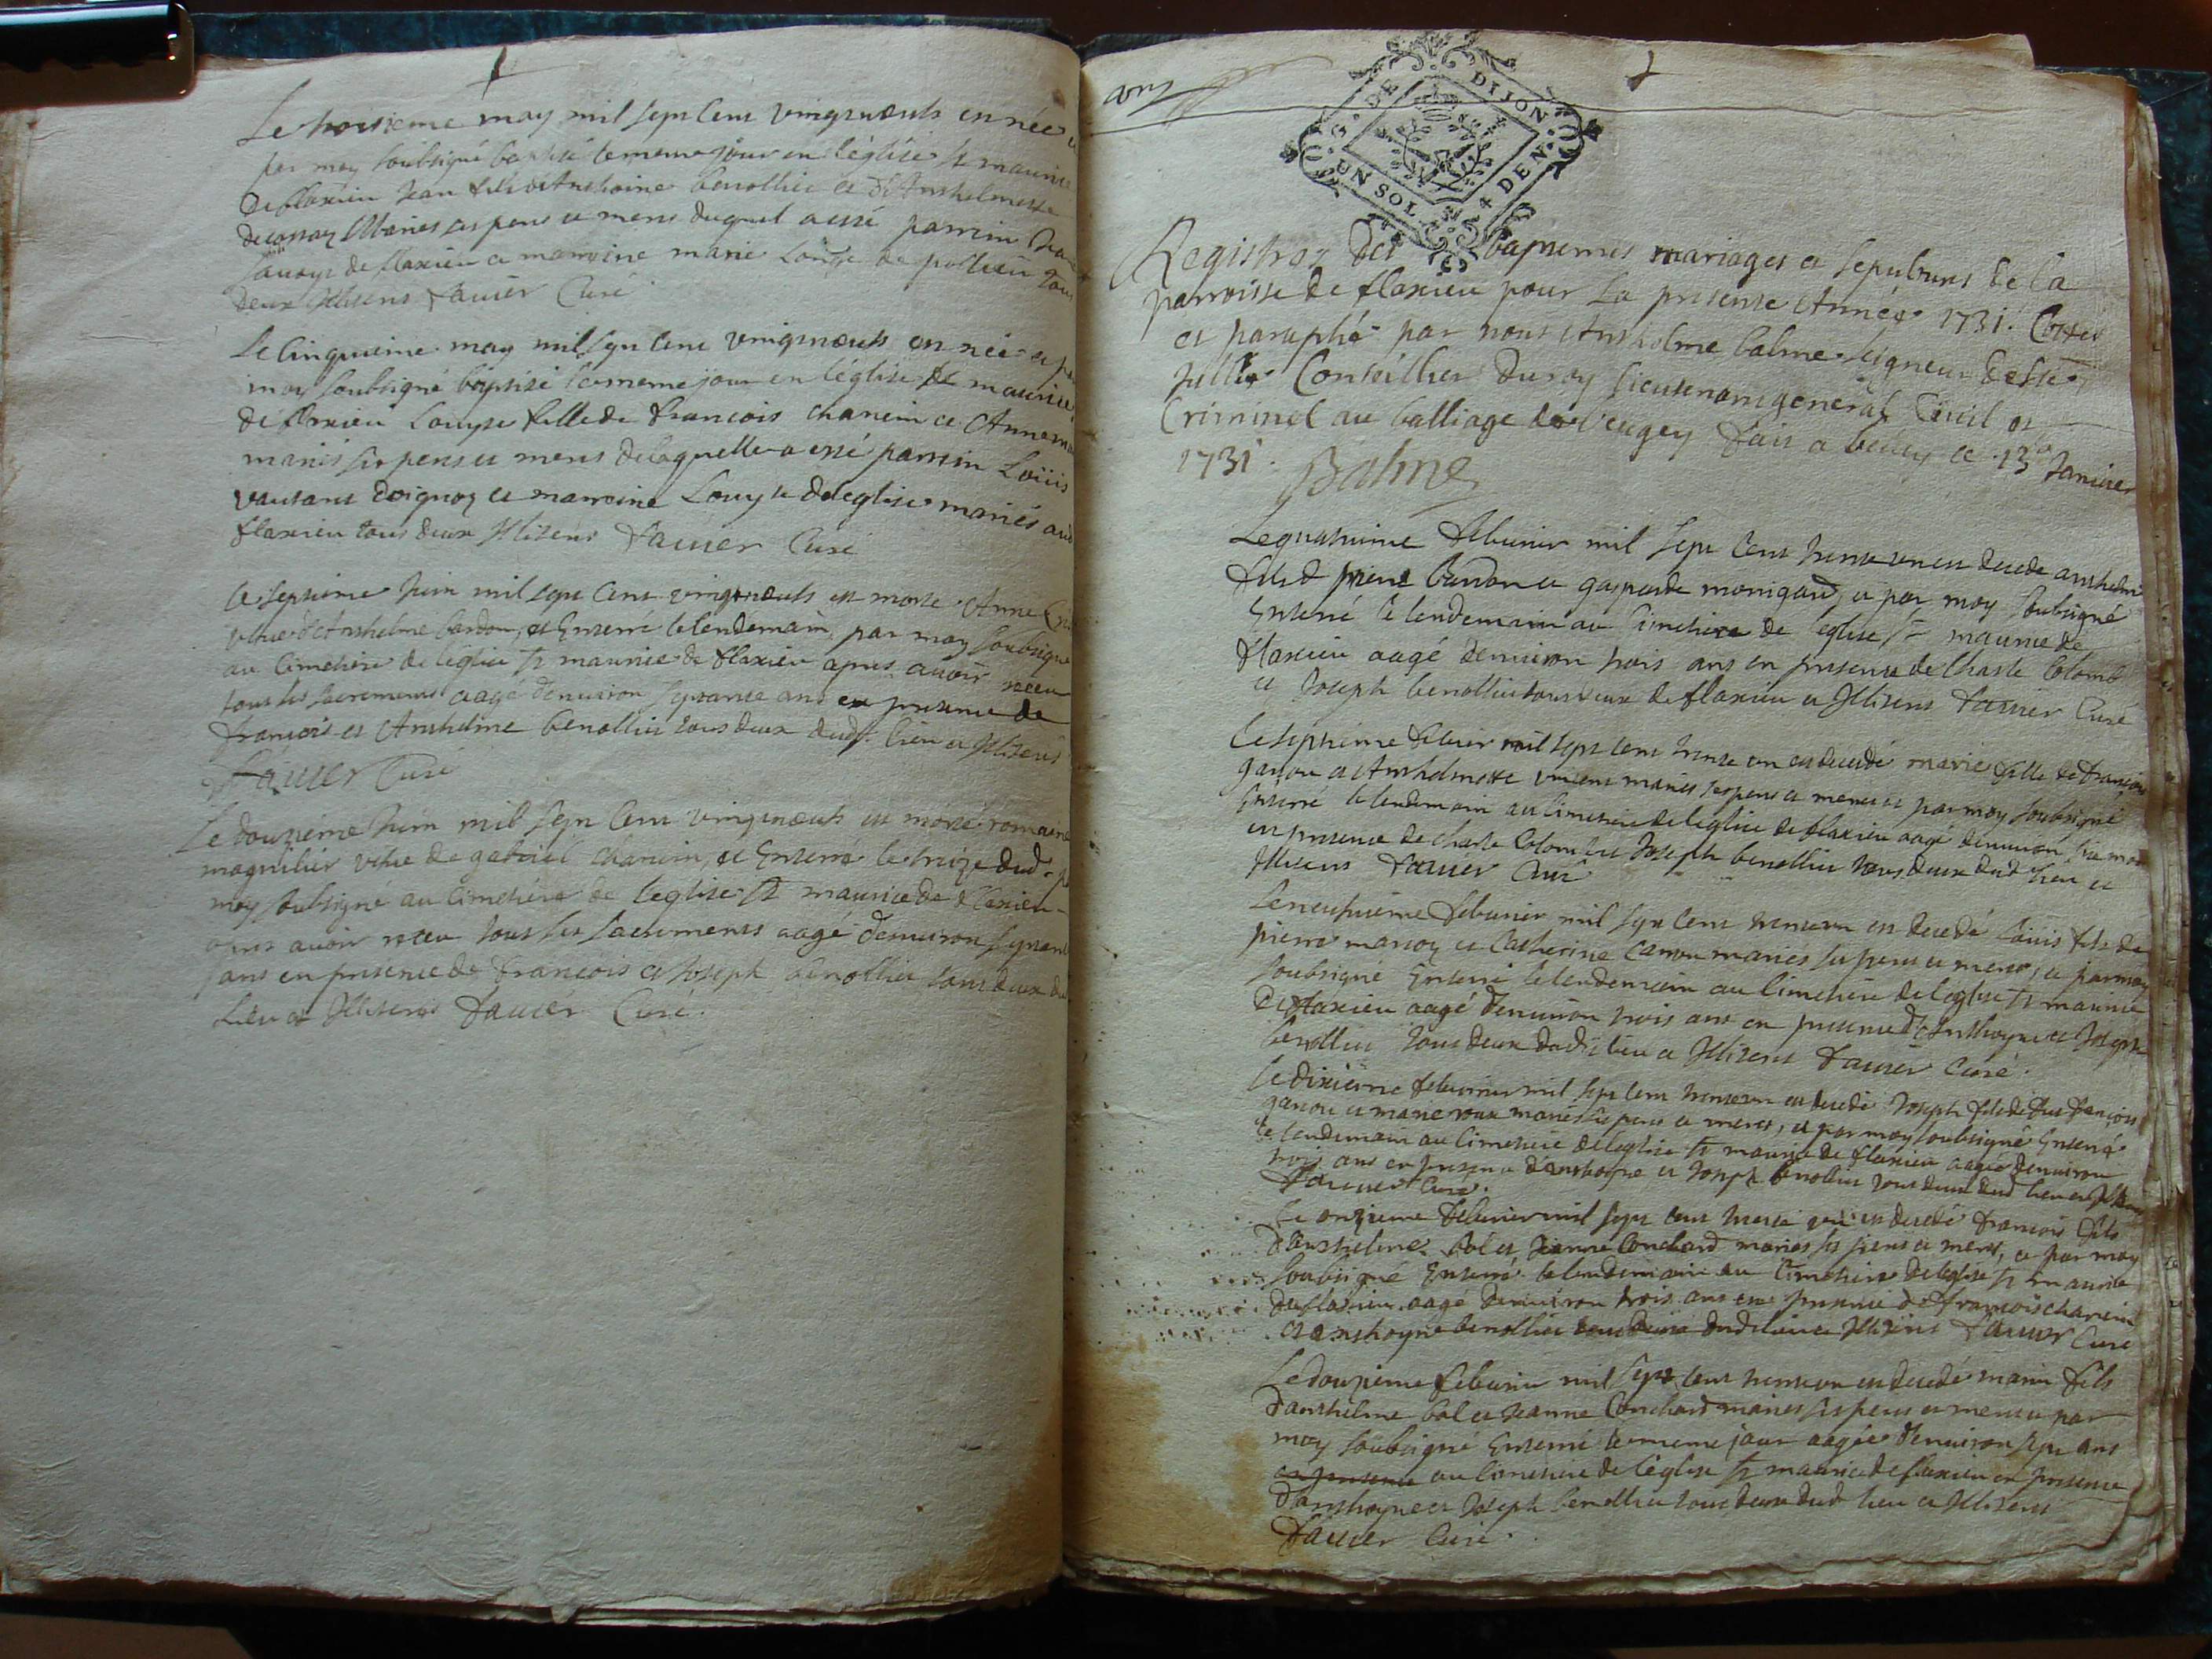 Le troisieme may mil sept cent vingtneufs est née et
par moy soubsigné baptisé le meme jour en l'églises st maurice
de flaxieu Jean fils de Anthoine benollier et d'Anthelmette
Mariés ses peres et meres duquel a esté parrin
de flaxieu et marroine marie de pollieu tous
deux Jlliterés Tauier Curé
Le Cinquieme may mil sept cent vingtneufs est née et par
moy soubsigné baptisé le meme jour en l'église st maurice
de flaxieu Louyse fille de francois charuin et Anne
mariés ses peres et meres delaquelle a esté parrin Loüis
et marroine Louyse deleglise mariés
flaxieu tous deux Jlliterés Tauier Curé
Le septieme Juin mil sept cent vingtneufs est morte Anne
vefue d'Anthelme bardon, et Enterré le lendemain par moy soubsigné
au Cimetiere de l'église st maurice de flaxieu apres auoir receu
tous les sacrements aagé denuiron septante ans en presence de
francois et Anthelme benollier tous deux dudt lieu et Jlliterés
Tauier Curé
Le douzieme Juin mil sept cent vingtneufs est morte romaine
magnilier vefue de gabriel charuin, et Enterré le treize dud. par
moy soubsigné au Cimetiere de l'eglise st maurice de flaxieu
apres auoir receu tous les sacrements aagé denuiron septante
ans en presence de francois et Joseph benollier tous deux du
Lieu et Jlliterés Tauier Curé.
ans
G. DE DIJON
UN SOL 4 DEN.
Registres des baptemes mariages et sepultures de la
parroisse de flaxieu pour la presente Année 1731. Cottés
et paraphé par nous Anthelme balme seigneur de ste
Jullie Conseiller du roy Lieutenant general Ciuil et
Criminel au balliage de beugey fait a belley ce 13e Januier
1731. Balme
Le quatrieme feburier mil sept cent trente un est decede anthelme
fils de pierre bardon et gasparde monigard, et par moy soubsigné
Enterré le lendemain au Cimetiere de l'eglise st maurice de
flaxieu aagé denuiron trois ans en presence de Charle Colomb
et Joseph benollier tous deux de flaxieu et Jlliterés Tauier Curé
Le septieme feburier mil sept cent trente un est decedé marie fille de francois
ganou et Anthelmette vincent mariés ses peres et meres et par moy soubsigné
Enterré le lendemain au Cimetiere de l'eglise de flaxieu aagé denuiron
en presence de charle Colomb et Joseph benollier tous deux dud lieu et
Jlliterés Tauier Curé
Le neufuieme feburier mil sept cent trente un est decedé Loüis fils de
pierre et Catherine mariés ses peres et meres, et par moy
soubsigné Enterré le lendemain au Cimetiere de l'église st maurice
de flaxieu aagé denuiron trois ans en presence d'Anthoyne et Joseph
benollier tous deux dudt lieu et Jlliterés Tauier Curé.
Le dixieme feburier mil sept cent trente un est decedé Joseph fils de feu francois
ganou et marie roux mariés ses peres et meres, et par moy soubsigné Enterré
le lendemain au Cimetiere de l'eglise st maurice de flaxieu aagé denuiron
trois ans en presence d'anthoyne et Joseph benollier tous deux dud lieu et
Tauier Curé.
Le onzieme feburier mil sept cent trente un est decedé francois fils
d'anthelme bol et Jeanne Conchard mariés ses peres et meres, et par moy
soubsigné Enterré le lendemain au Cimetiere de l'eglise st maurice
de flaxieu aagé denuiron trois ans en presence de francois charuin
et anthoyne benollier tous deux dud lieu et Jlliterés Tauier Curé
Le douzieme feburier mil sept cent trente un est decedé marin fils
d'anthelme bol et Jeanne Conchard mariés ses peres et meres et par
moy soubsigné Enterré le meme jour aagée denuiron sept ans
en presence au Cimetiere de l'église st maurice de flaxieu en presence
d'anthoyne et Joseph benollier tous deux dud lieu et Jlliterés
Tauier Curé.